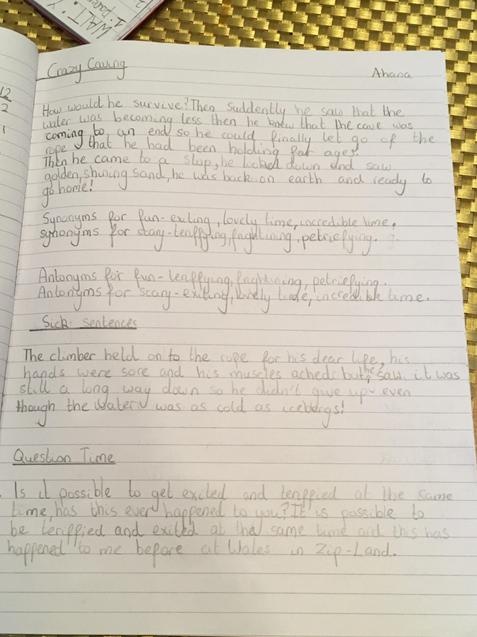 WAIT:
12
2
1
Crazy Caving
Ahana
How would he survive? Then Suddently he saw that the
water was becoming less then he knew that the cave was
coming to an end so he could finally let go of the
rope that he had been holding for ages.
Then he came to a stop, he looked down and saw
golden, shining sand, he was back on earth and ready to
go home!
Synonyms for fun- exiting, lovely time, incredible time.
synonyms for scary- teriffying, frightining, petriefying.
Antonyms for fun- teriffying, frightining, petriefying.
Antonyms for scary- exiting, lovely time, incredible time.
Sick sentences
The climber held on to the rope for his dear life, his
hands were sore and his muscles ached but he saw it was
still a long way down so he didn't give up- even
though the water was as cold as icebergs!
Question Time
Is it possible to get exited and teriffied at the same
time, has this ever happened to you? It is possible to
be teriffied and exited at the same time and this has
happened to me before at Wales in Zip-Land.